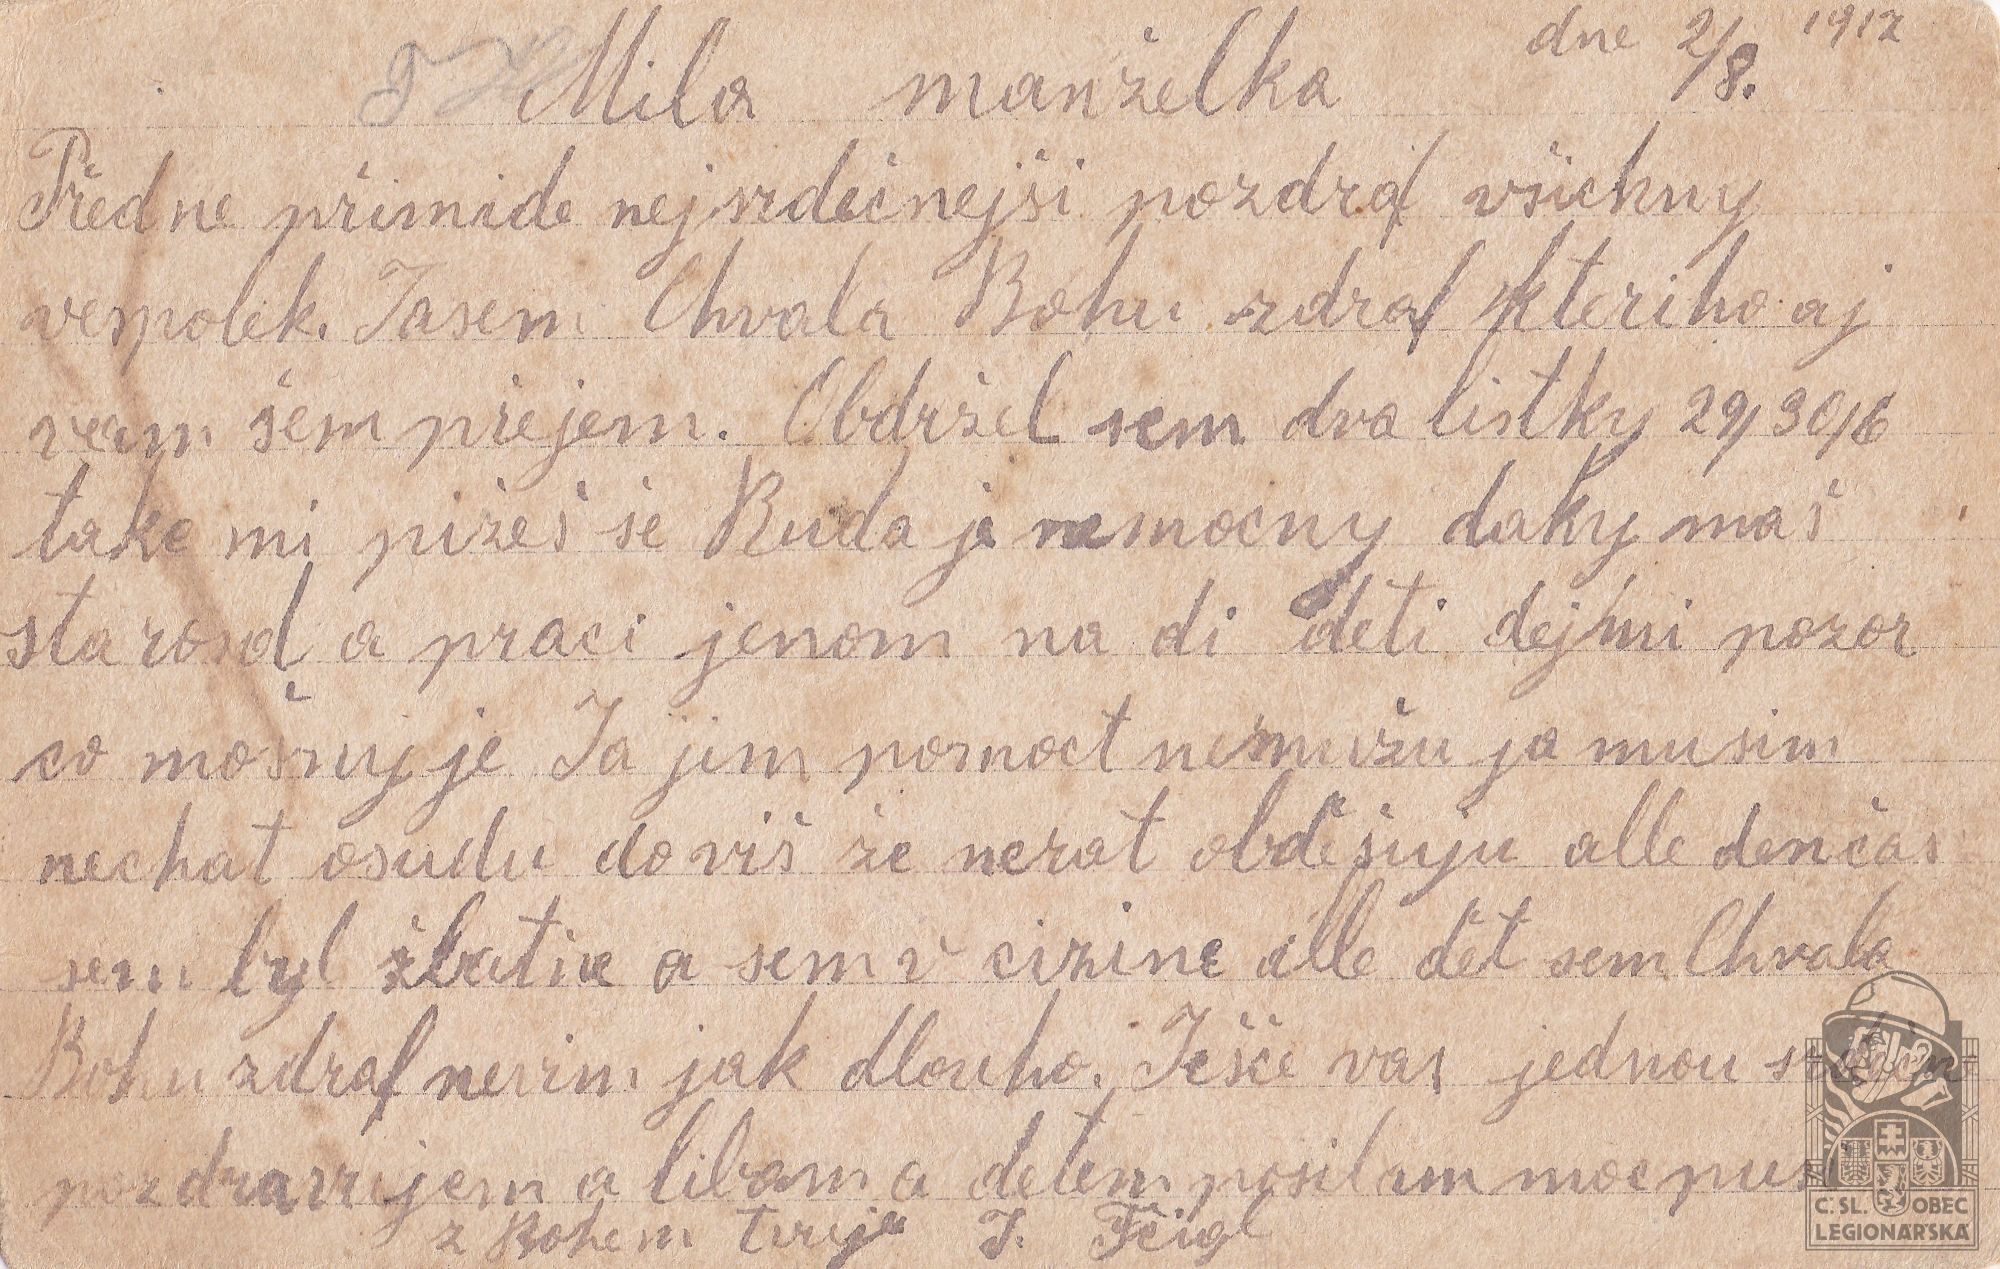 dne 2/8. 1917
Mila manželka
Předne přimide nejsrdečnejši pozdraf všichny
vespolek. Jasem Chvala Bohu zdraf kteriho aj
vam šem přejem. Obdržel sem dva listky 29/30/6
take mi pižeš še Ruda je nemocny daky maš
starosd a praci jenom na di deti dej mi pozor
co možnyj je Ja jim pomoct nemužu ja musim
nechat osudu do viš že nerat alle denčas
sem byl a sem v cizine alle det sem Chvala
Bohu zdraf nevim jak dlouho. Ješče vas jednou
pozdravujem a libam a detem posilam moc pus
z Bohem tvuj J. Feigl
Č. SL. OBEC
LEGIONÁŘSKÁ